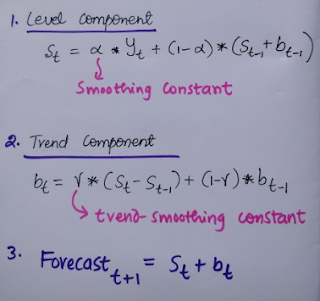 1. Level Component
St = α * Yt + (1-α) * (St-1 + bt-1)
Smoothing Constant
2. Trend Component
bt = γ * (St - St-1) + (1-γ) * bt-1
trend-smoothing constant
3. Forecast t+1 = St + bt